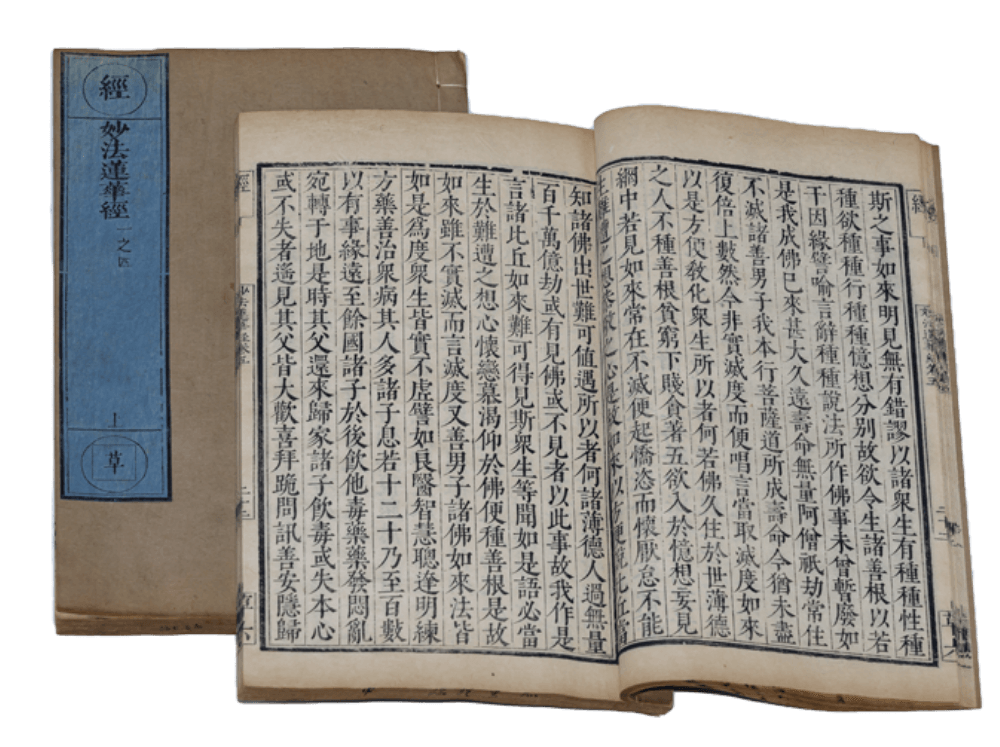 經
妙法蓮華經
一之四
上
草
斯之事如來明見無有錯謬以諸衆生有種種性種
種欲種種行種種憶想分別故欲令生諸善根以若
干因緣譬喻言辭種種說法所作佛事未曾暫廢如
是我成佛已來甚大久遠壽命無量阿僧祇劫常住
不滅諸善男子我本行菩薩道所成壽命今猶未盡
復倍上數然今非實滅度而便唱言當取滅度如來
以是方便敎化衆生所以者何若佛久住於世薄德
之人不種善根貧窮下賤貪著五欲入於憶想妄見
網中若見如來常在不滅便起憍恣而懷厭怠不能
生難遭之想恭敬之心是故如來以方便說比丘當
知諸佛出世難可値遇所以者何諸薄德人過無量
百千萬億劫或有見佛或不見者以此事故我作是
言諸比丘如來難可得見斯衆生等聞如是語必當
生於難遭之想心懷戀慕渴仰於佛便種善根是故
如來雖不實滅而言滅度又善男子諸佛如來法皆
如是爲度衆生皆實不虛譬如良醫智慧聰達明練
方藥善治衆病其人多諸子息若十二十乃至百數
以有事緣遠至餘國諸子於後飲他毒藥藥發悶亂
宛轉于地是時其父還來歸家諸子飲毒或失本心
或不失者遙見其父皆大歡喜拜跪問訊善安隱歸